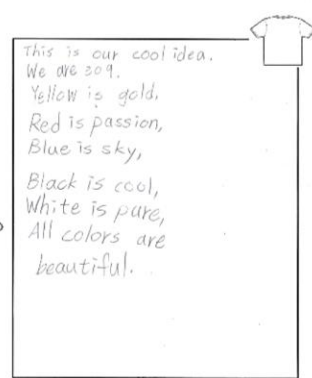 This is our cool idea.
We are 309.
Yellow is gold,
Red is passion,
Blue is sky,
Black is cool,
White is pure,
All colors are
beautiful.